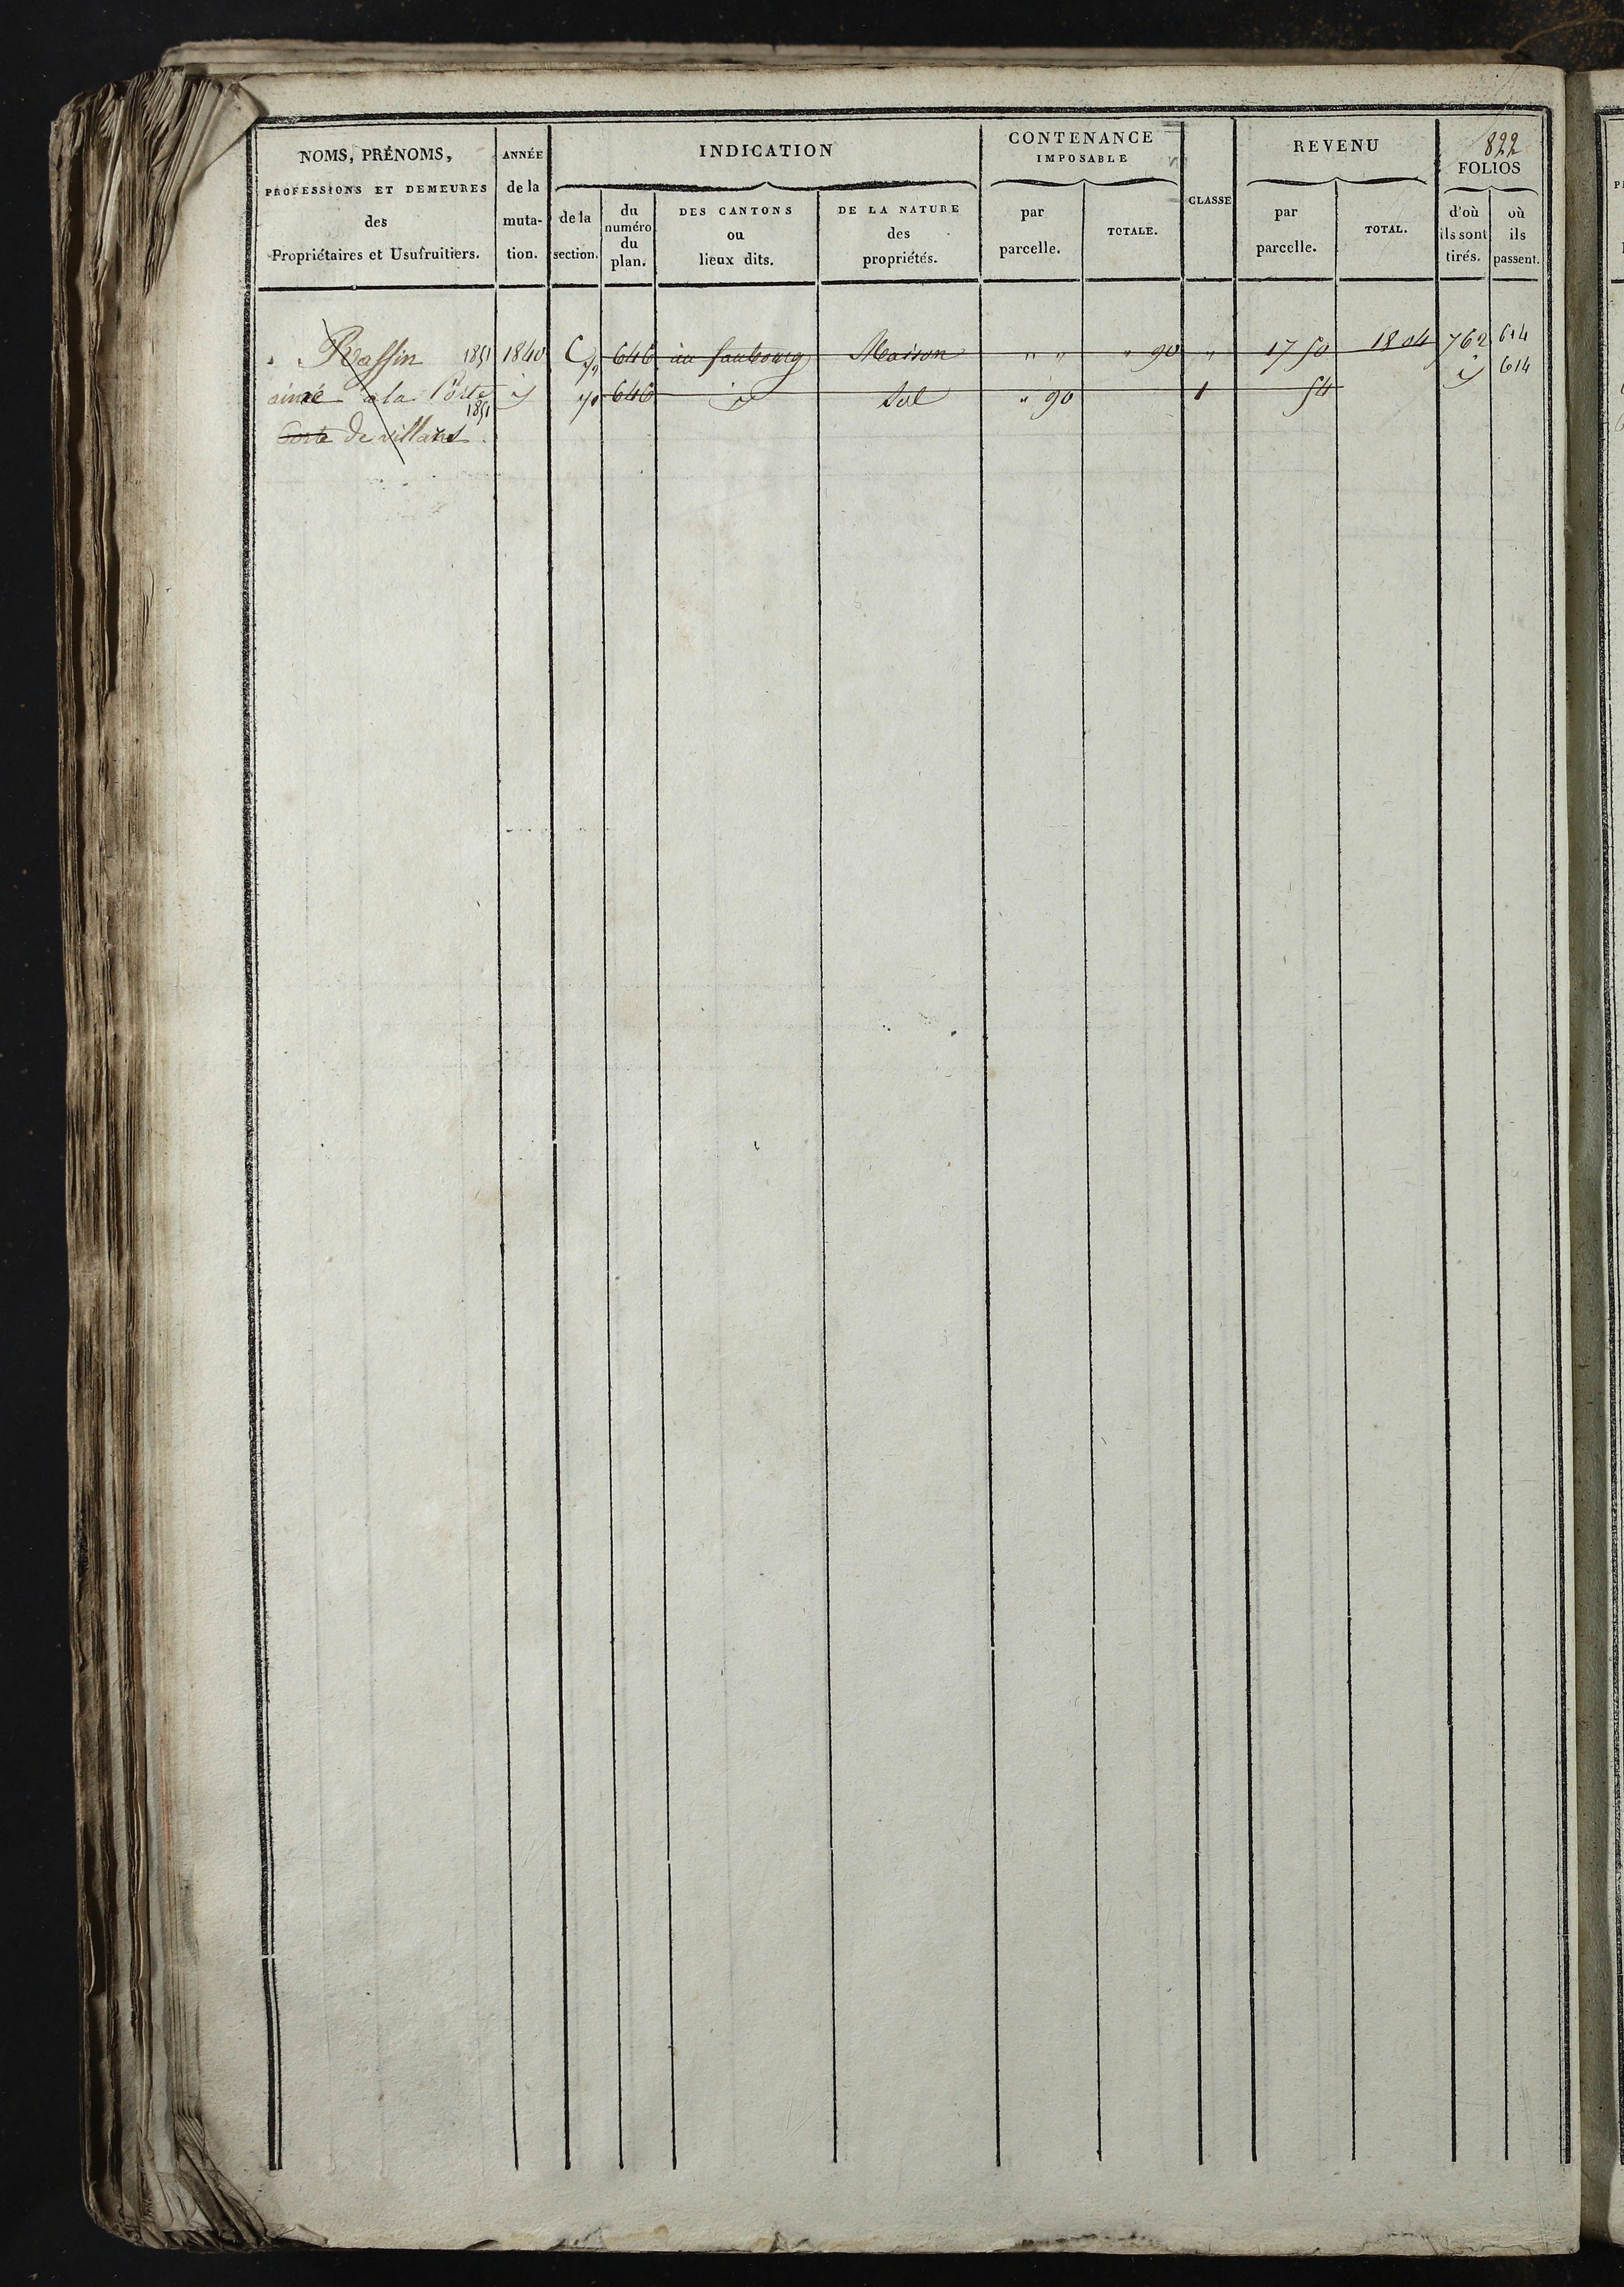 822
NOMS, PRÉNOMS,
PROFESSIONS ET DEMEURES
des
Propriétaires et Usufruitiers.
ANNÉE
de la
muta-
tion.
INDICATION
de la
section.
du
numéro
du
plan.
DES CANTONS
ou
lieux dits.
DE LA NATURE
des
propriétés.
CONTENANCE
IMPOSABLE
par
parcelle.
TOTALE.
CLASSE
REVENU
par
parcelle.
TOTAL.
FOLIOS
d'où
ils sont
tirés.
où
ils
passent.
Raffin 1851 1840 C 646 au faubourg Maison " " " 90 " 17 50 18 04 762 614
aimé à la Porte id 646 id Sol " 90 1 54 id 614
1851
de villard